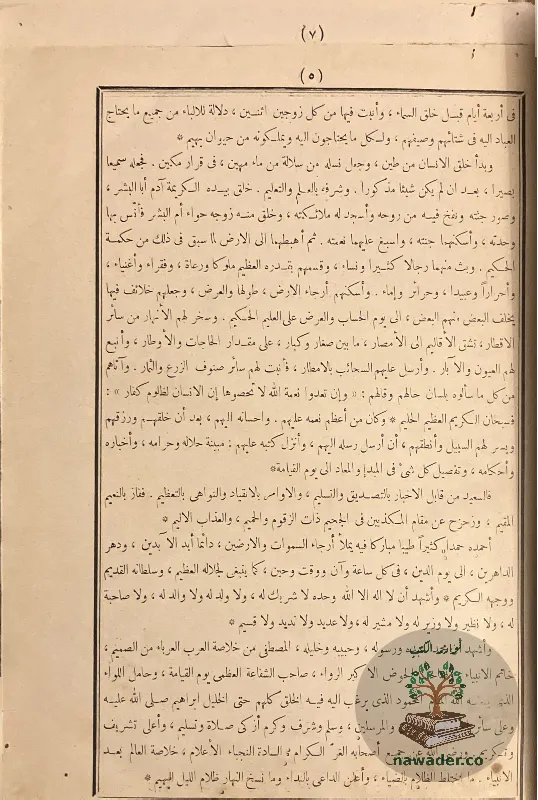 (٧)
(٥)
فى أربعة أيام قبل خلق السماء ، وأنبت فيها من كل زوجين اثنين ، دلالة للألباء من جميع ما يحتاج
العباد اليه فى شتائهم وصيفهم ، ولكل ما يحتاجون اليه ويملكونه من حيوان بهيم *
وبدأ خلق الانسان من طين ، وجعل نسله من سلالة من ماء مهين ، فى قرار مكين . فجعله سميعا
بصيرا ، بعد ان لم يكن شيئا مذكورا . وشرفه بالعلم والتعليم . خلق بيده الكريمة آدم أبا البشر ،
وصور جثته ونفخ فيه من روحه وأسجد له ملائكته ، وخلق منه زوجه حواء أم البشر فأنس بها
وحدته ، وأسكنهما جنته ، وأسبغ عليهما نعمته . ثم أهبطهما الى الارض لما سبق فى ذلك من حكمة
الحكيم . وبث منهما رجالا كثيرا ونساء ، وقسمهم بقدره العظيم ملوكا ورعاة ، وفقراء وأغنياء ،
وأحرارا وعبيدا ، وحرائر وإماء . وأسكنهم أرجاء الارض ، طولها والعرض ، وجعلهم خلائف فيها
يخلف البعض منهم البعض ، الى يوم الحساب والعرض على العليم الحكيم . وسخر لهم الأنهار من سائر
الاقطار ، تشق الاقاليم الى الأمصار ، ما بين صغار وكبار ، على مقدار الحاجات والأوطار ، وأنبع
لهم العيون والآبار . وأرسل عليهم السحائب بالامطار ، فأنبت لهم سائر صنوف الزرع والثمار . وآتاهم
من كل ما سألوه بلسان حالهم وقالهم : « وإن تعدوا نعمة الله لا تحصوها إن الانسان لظلوم كفار » :
فسبحان الكريم العظيم الحليم * وكان من أعظم نعمه عليهم . واحسانه اليهم ، بعد أن خلقهم ورزقهم
ويسر لهم السبيل وأنطقهم ، أن أرسل رسله اليهم ، وأنزل كتبه عليهم : مبينة حلاله وحرامه ، وأخباره
وأحكامه ، وتفصيل كل شئ فى المبدإ والمعاد الى يوم القيامة*
فالسعيد من قابل الاخبار بالتصديق والتسليم ، والاوامر بالانقياد والنواهى بالتعظيم . ففاز بالنعيم
المقيم ، وزحزح عن مقام المكذبين فى الجحيم ذات الزقوم والحميم ، والعذاب الاليم *
أحمده حمدا كثيرا طيبا مباركا فيه يملأ أرجاء السموات والارضين ، دائما أبد الآبدين ، ودهر
الداهرين ، الى يوم الدين ، فى كل ساعة وآن ووقت وحين ، كما ينبغى لجلاله العظيم ، وسلطانه القديم
ووجهه الكريم * وأشهد أن لا اله الا الله وحده لا شريك له ، ولا ولد له ولا والد له ، ولا صاحبة
له ، ولا نظير ولا وزير له ولا مشير له ، ولا عديد ولا نديد ولا قسيم *
وأشهد ورسوله ، وحبيبه وخليله ، المصطفى من خلاصة العرب العرباء من الصميم ،
خاتم الانبياء الحوض الاكبر الرواء ، صاحب الشفاعة العظمى يوم القيامة ، وحامل اللواء
الذى الله المحمود الذى يرغب اليه فيه الخلق كلهم حتى الخليل ابراهيم صلى الله عليه
وعلى سائر والمرسلين ، وسلم وشرف وكرم أزكى صلاة وتسليم ، وأعلى تشريف
وتكريم . ورضى الله عن جميع أصحابه الغر الكرام السادة النجباء الأعلام ، خلاصة العالم بعد
الانبياء . ما اختلط الظلام بالضياء ، وأعلن الداعى بالنداء وما نسخ النهار ظلام الليل البهيم *
نوادر الكتب
nawader.co